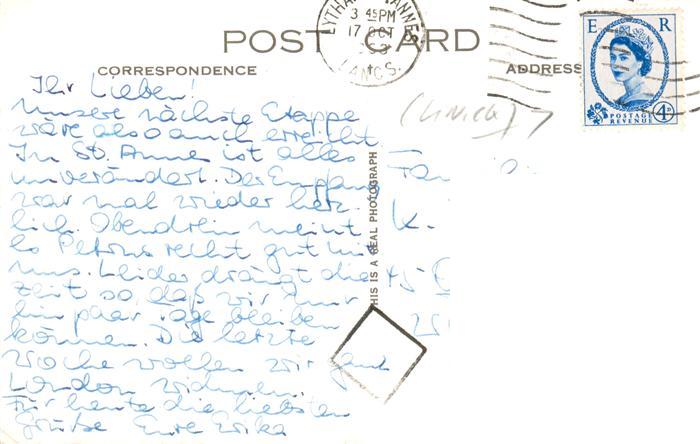 LYTHAM ANNES
3 45 PM
17 OCT
LANCS.
POST CARD
E R
POSTAGE
REVENUE
4D
CORRESPONDENCE
ADDRESS
Ihr Lieben!
Unsere nächste Etappe
wäre also auch erreicht
In St. Anne ist alles
unverändert. Der Empfang
war mal wieder herz-
lich. Obendrein meint
es Petrus recht gut mit
uns. Leider drängt die
Zeit so, daß wir nur
ein paar Tage bleiben
können. Die letzte
Woche wollen wir ganz
London widmen.
Für heute die liebsten
Grüße Eure Erika
THIS IS A REAL PHOTOGRAPH
Fam
K.
45